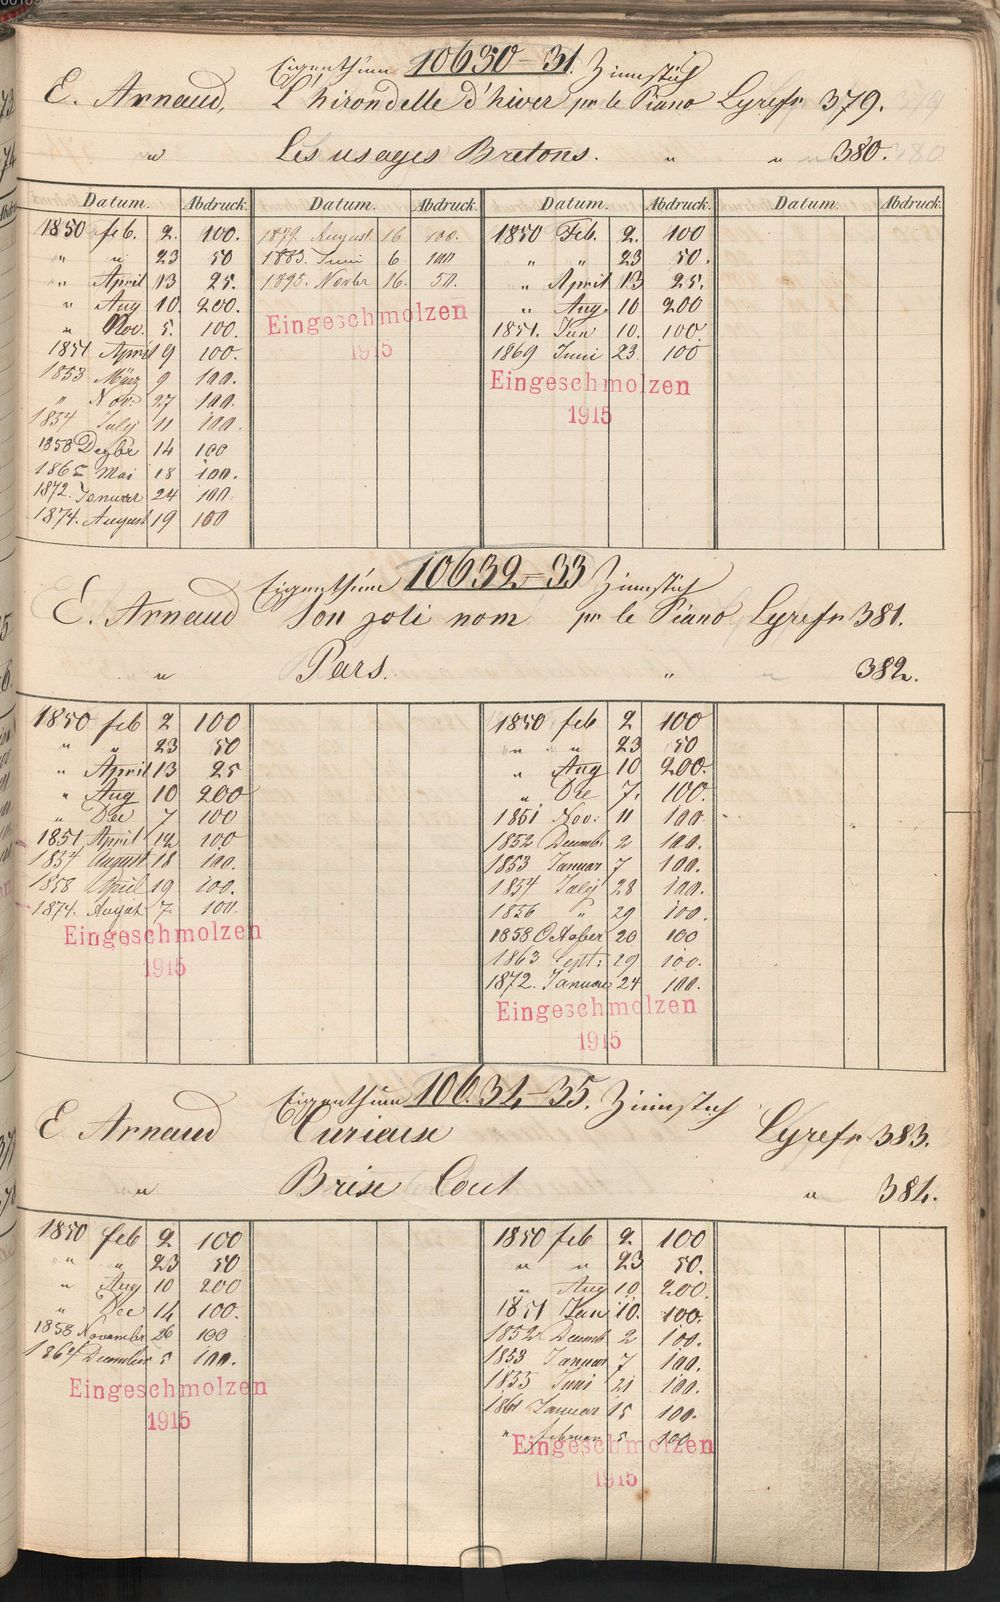 Eigenthum 10630-31. Zinnstich
E. Arnaud, L'hirondelle d'hiver pr le Piano Lyrefr 379.
" Les usages Bretons. " " 380.
Datum. Abdruck. Datum. Abdruck. Datum. Abdruck. Datum. Abdruck.
1850 feb. 2. 100.
" " 23 50
" April 13 25.
" Aug 10. 200.
" Nov. 5. 100.
1851 April 9 100.
1853 März 9 100.
" Nov. 27 100.
1854 July 11 100.
1858 Dezbr 14 100
1865 Mai 18 100.
1872. Januar 24 100.
1874. August 19 100
1879. August 16 100.
1883. Juni 6. 100
1895. Novbr 16. 50.
Eingeschmolzen
1915
1850 Feb. 2. 100
" " 23 50.
" April 13 25.
" Aug 10 200
1851. Jun 10. 100.
1869 Juni 23. 100
Eingeschmolzen
1915
Eigenthum 10632-33 Zinnstich
E. Arnaud Son joli nom pr le Piano Lyrefr 381.
" Pars. " " 382.
1850 feb 2 100
" " 23 50
" April 13 25
" Aug 10 200
" Dec 7 100
1851 April 12 100
1854 August 18 100.
1858 April 19 100.
1874. August 7. 100.
Eingeschmolzen
1915
1850 feb 2 100
" " 23 50
" Aug 10 200.
" Dec 7. 100.
1851 Nov. 11 100
1852 Decemb. 2 100.
1853 Januar 7 100.
1854 July 28 100.
1856 " 29 100.
1858 October 20 100
1863 Sept: 29 100.
1872. Januar 24 100.
Eingeschmolzen
1915
Eigenthum 10634-35. Zinnstich
E Arnaud Curieuse Lyrefr 383.
" Brise Cout " 384.
1850 feb 2 100
" " 23 50
" Aug 10 200
" Dec 14 100.
1858 November 26 100
1864 December 5 100.
Eingeschmolzen
1915
1850 feb 2. 100
" " 23 50.
" Aug 10. 200.
1851 Jun 10. 100.
1852 Decemb 2 100.
1853 Januar 7 100.
1855 Juni 21 100.
1861 Januar 15 100.
" februar 5 100
Eingeschmolzen
1915